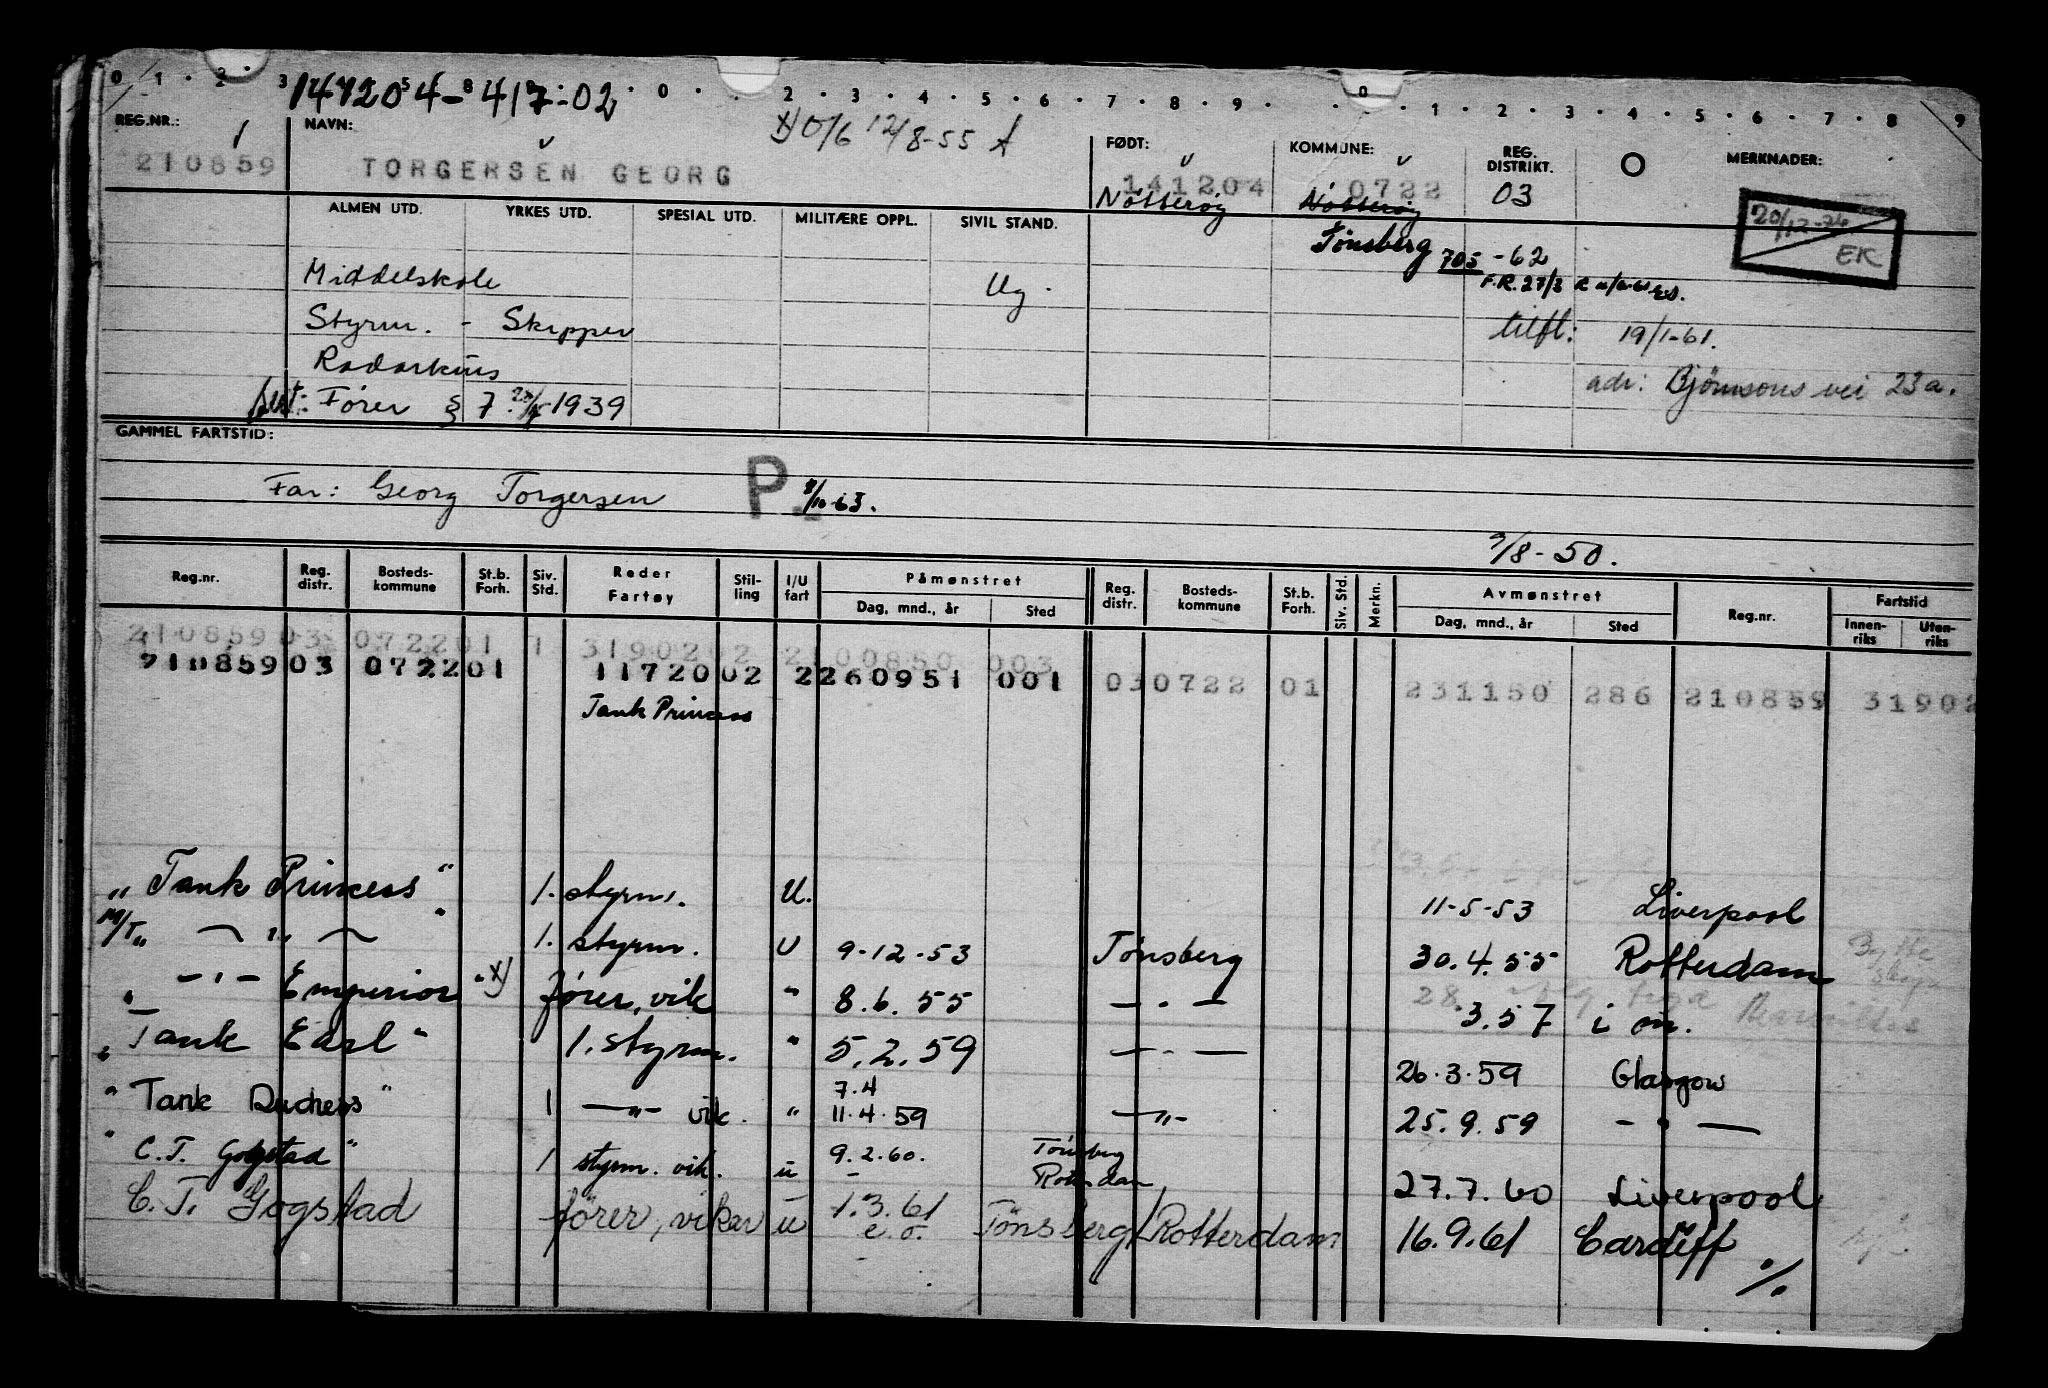 0 1 2 3 5 8 0 2 3 4 5 6 7 8 9 0 1 2 3 4 5 6 7 8 9
REG.NR.: 1 NAVN: FØDT: KOMMUNE: REG. DISTRIKT. O MERKNADER:
x) 0/6 12/8-55 A
210859 TORGERSEN GEORG 141204 0722 03
Nötterøy Nötterøy
ALMEN UTD. YRKES UTD. SPESIAL UTD. MILITÆRE OPPL. SIVIL STAND.
EK
Tønsberg 705 -62
Middelskole Ug.
Styrm. - Skipper tilfl: 19/1-61.
Radarkurs adr: Bjørnsons vei 23a.
Fører § 7 1939
GAMMEL FARTSTID:
Far: Georg Torgersen P 8/10-63.
9/8-50.
Reg.nr. Reg. distr. Bosteds-kommune St.b. Forh. Siv. Std. Reder Fartøy Stil-ling I/U fart Påmønstret Reg. distr. Bosteds-kommune St.b. Forh. Siv. Std. Merkn. Avmønstret Reg.nr. Fartstid
Dag, mnd., år Sted Dag, mnd., år Sted Innen-riks Uten-riks
210859 03 0722 01 1 31902 02 2100850 003
210859 03 0722 01 11720 02 2260951 001 03 0722 01 231150 286 210859 31902
Tank Princess
„ Tank Princess " 1. styrm. U. 11-5-53 Liverpool
M/T „ — " — " 1. styrm. U 9-12-53 Tønsberg 30.4.55 Rotterdam
„ — " — Emperior " x) fører, vik " 8.6.55 — " — 3.57 i m.
„ Tank Earl " 1. styrm. " 5.2.59 — " — 26.3.59 Glasgow
7.4
" Tank Duchess " 1 — " — vik. " 11.4.59 — " — 25.9.59 — " —
" C.T. Gogstad " 1 styrm. vik. u 9.2.60. Tönsberg
Rotterdam 27.7.60 Liverpool
C.T. Gogstad fører, vikar u 1.3.61 Tönsberg/Rotterdam 16.9.61 Cardiff
e.o.
%